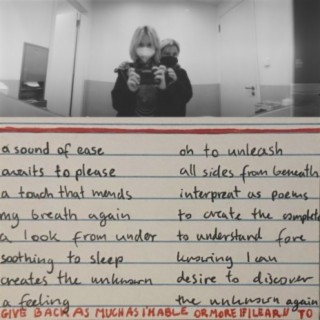 a sound of ease
awaits to please
a touch that mends
my breath again
a look from under
soothing to sleep
creates the unknown
a feeling
oh to unleash
all sides from beneath
interpret as poems
to create the complete
to understand fore
knowing I can
desire to discover
the unknown again
GIVE BACK AS MUCH AS I'M ABLE OR MORE IF I LEARN TO